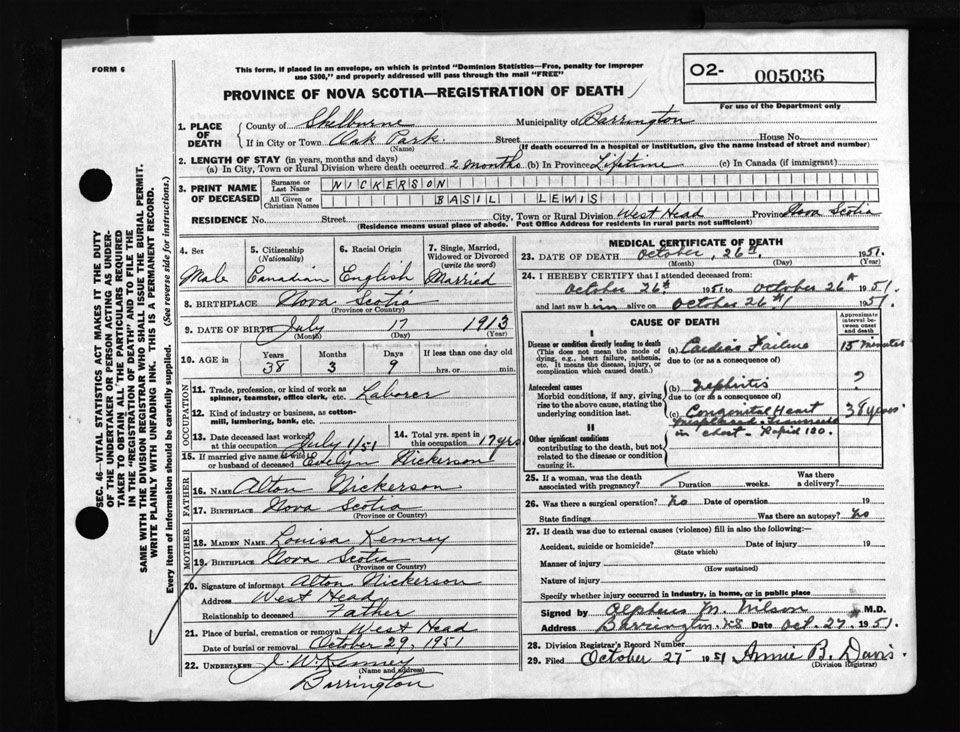 FORM 6
This form, if placed in an envelope, on which is printed "Dominion Statistics—Free, penalty for improper
use $300," and properly addressed will pass through the mail "FREE"
O2- 005036
For use of the Department only
PROVINCE OF NOVA SCOTIA—REGISTRATION OF DEATH
1. PLACE OF DEATH
County of Shelburne Municipality of Barrington
If in City or Town Oak Park Street House No.
(Name) (If death occurred in a hospital or institution, give the name instead of street and number)
2. LENGTH OF STAY (in years, months and days)
(a) In City, Town or Rural Division where death occurred 2 months (b) In Province Lifetime (c) In Canada (if immigrant)
3. PRINT NAME OF DECEASED
Surname or Last Name NICKERSON
All Given or Christian Names BASIL LEWIS
RESIDENCE No. Street City, Town or Rural Division West Head Province Nova Scotia
(Residence means usual place of abode. Post Office Address for residents in rural parts not sufficient)
4. Sex Male
5. Citizenship (Nationality) Canadian
6. Racial Origin English
7. Single, Married, Widowed or Divorced (write the word) Married
8. BIRTHPLACE Nova Scotia
(Province or Country)
9. DATE OF BIRTH July 17 1913
(Month) (Day) (Year)
10. AGE in Years 38 Months 3 Days 9 If less than one day old hrs. or min.
OCCUPATION
11. Trade, profession, or kind of work as spinner, teamster, office clerk, etc. Laborer
12. Kind of industry or business, as cotton-mill, lumbering, bank, etc.
13. Date deceased last worked at this occupation July 1/51
14. Total yrs. spent in this occupation 17 yrs
15. If married give name of wife or husband of deceased Evelyn Nickerson
FATHER
16. NAME Alton Nickerson
17. BIRTHPLACE Nova Scotia
(Province or Country)
MOTHER
18. MAIDEN NAME. Louisa Kenney
19. BIRTHPLACE Nova Scotia
(Province or Country)
20. Signature of informant Alton Nickerson
Address West Head
Relationship to deceased Father
21. Place of burial, cremation or removal West Head
Date of burial or removal October 29, 1951
22. UNDERTAKER J. W. Kenney
(Name and address)
Barrington
MEDICAL CERTIFICATE OF DEATH
23. DATE OF DEATH October, 26th, 1951
(Month) (Day) (Year)
24. I HEREBY CERTIFY that I attended deceased from
October 26th 1951 to October 26th 1951
and last saw him alive on October 26th 1951
CAUSE OF DEATH
Approximate interval between onset and death
I
Disease or condition directly leading to death
(This does not mean the mode of dying, e.g., heart failure, asthenia, etc. It means the disease, injury, or complication which caused death.)
(a) Cardiac Failure 15 minutes
due to (or as a consequence of)
Antecedent causes
Morbid conditions, if any, giving rise to the above cause, stating the underlying condition last.
(b) Nephritis ?
due to (or as a consequence of)
(c) Congenital Heart 38 years
II
Other significant conditions
contributing to the death, but not related to the disease or condition causing it.
in chest - Rapid 120.
25. If a woman, was the death associated with pregnancy? Duration weeks. Was there a delivery?
26. Was there a surgical operation? No Date of operation 19
State findings Was there an autopsy? No
27. If death was due to external causes (violence) fill in also the following:-
Accident, suicide or homicide? Date of injury 19
(State which)
Manner of injury
(How sustained)
Nature of injury
Specify whether injury occurred in industry, in home, or in public place
Signed by Alpheus M. Wilson M.D.
Address Barrington. NS Date Oct. 27. 1951.
28. Division Registrar's Record Number
29. Filed October 27 1951 Annie B. Davis
(Division Registrar)
SEC. 46—VITAL STATISTICS ACT MAKES IT THE DUTY
OF THE UNDERTAKER OR PERSON ACTING AS UNDER-
TAKER TO OBTAIN ALL THE PARTICULARS REQUIRED
IN THE "REGISTRATION OF DEATH" AND TO FILE THE
SAME WITH THE DIVISION REGISTRAR WHO SHALL ISSUE THE BURIAL PERMIT.
WRITE PLAINLY WITH UNFADING INK. THIS IS A PERMANENT RECORD.
Every item of information should be carefully supplied. (See reverse side for instructions.)